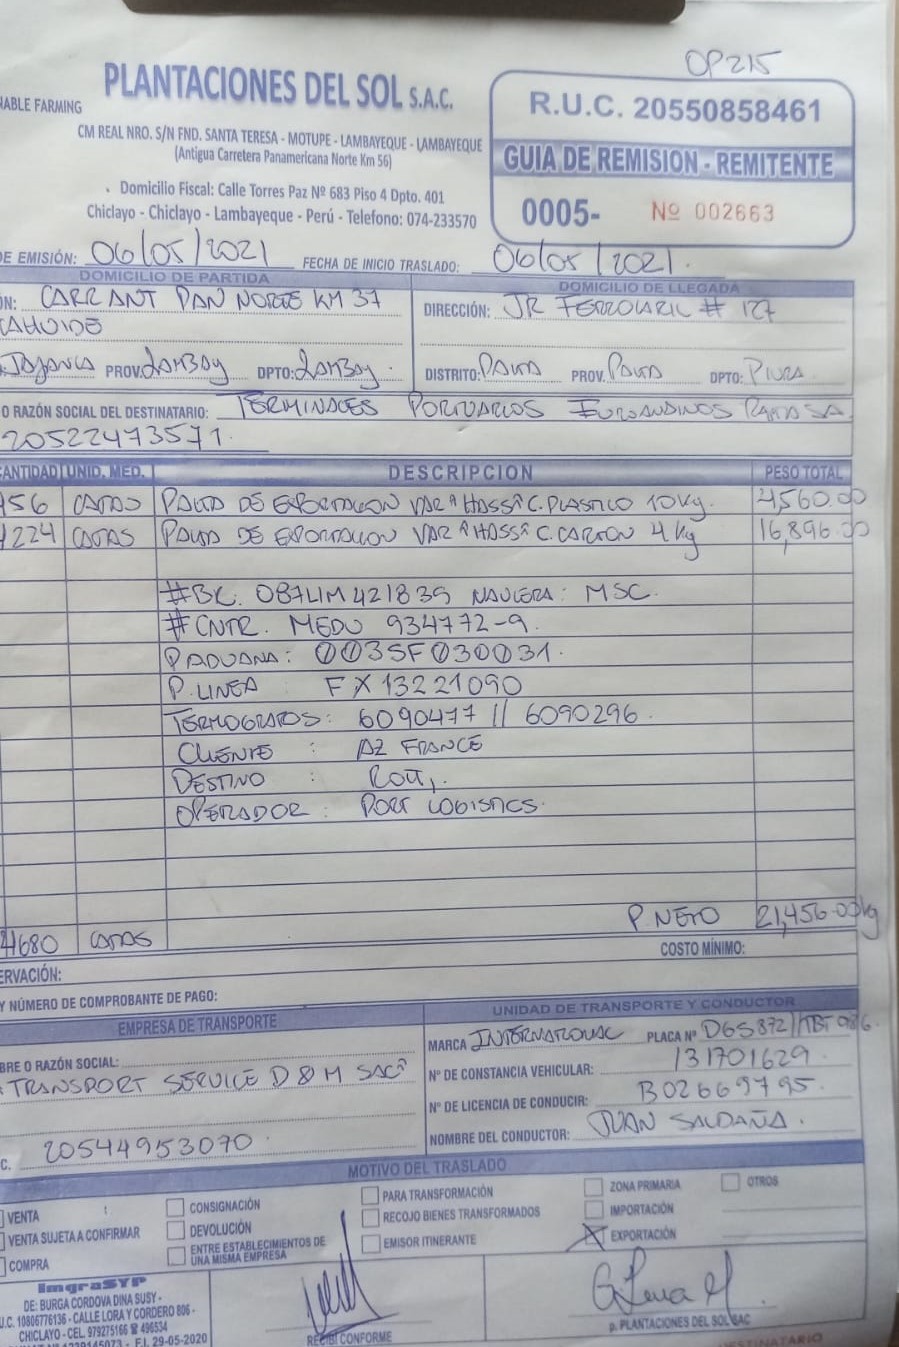 OP215
NABLE FARMING
PLANTACIONES DEL SOL S.A.C.
CM REAL NRO. S/N FND. SANTA TERESA - MOTUPE - LAMBAYEQUE - LAMBAYEQUE
(Antigua Carretera Panamericana Norte Km 56)
Domicilio Fiscal: Calle Torres Paz Nº 683 Piso 4 Dpto. 401
Chiclayo - Chiclayo - Lambayeque - Perú - Telefono: 074-233570
R.U.C. 20550858461
GUIA DE REMISION - REMITENTE
0005- Nº 002663
DE EMISIÓN: 06/05/2021 FECHA DE INICIO TRASLADO: 06/05/2021.
DOMICILIO DE PARTIDA
ÓN: CARR ANT PAN NORTE KM 37
CAHUIDE
JAYANCA PROV. LAMBAY DPTO: LAMBAY.
DOMICILIO DE LLEGADA
DIRECCIÓN: JR FERROCARIL # 127
DISTRITO: PAITA PROV. PAITA DPTO: PIURA
O RAZÓN SOCIAL DEL DESTINATARIO: TERMINALES PORTUARIOS EUROANDINOS PAITA SA
20522473571.
CANTIDAD UNID. MED. DESCRIPCION PESO TOTAL
456 CAJAS PALTA DE EXPORTACION VAR "HASS" C. PLASTICO 10 Kg. 4,560.00
4224 CAJAS PALTA DE EXPORTACION VAR "HASS" C. CARTON 4 Kg 16,896.00
#BK: 087LIM421839 NAVIERA: MSC.
# CNTR. MEDU 934772-9.
P. ADUANA: 003SF030031.
P. LINEA : FX13221090
TERMOGRAFOS: 6090477 // 6090296.
CLIENTE : AZ FRANCE
DESTINO : ROTT.
OPERADOR : PORT LOGISTICS.
P. NETO 21,456.00kg
4680 CAJAS
COSTO MÍNIMO:
ERVACIÓN:
Y NÚMERO DE COMPROBANTE DE PAGO:
EMPRESA DE TRANSPORTE
BRE O RAZÓN SOCIAL:
TRANSPORT SERVICE D & M SAC
C. 20544953070.
UNIDAD DE TRANSPORTE Y CONDUCTOR
MARCA INTERNATIONAL PLACA Nº D6S872//TBT986
Nº DE CONSTANCIA VEHICULAR: 131701629.
Nº DE LICENCIA DE CONDUCIR: B02669795.
NOMBRE DEL CONDUCTOR: JUAN SALDAÑA.
MOTIVO DEL TRASLADO
VENTA
VENTA SUJETA A CONFIRMAR
COMPRA
CONSIGNACIÓN
DEVOLUCIÓN
ENTRE ESTABLECIMIENTOS DE
UNA MISMA EMPRESA
PARA TRANSFORMACIÓN
RECOJO BIENES TRANSFORMADOS
EMISOR ITINERANTE
ZONA PRIMARIA
IMPORTACIÓN
X EXPORTACIÓN
OTROS
ImgraSYP
DE: BURGA CORDOVA DINA SUSY -
U.C. 10806776136 - CALLE LORA Y CORDERO 806 -
CHICLAYO - CEL. 979275166 ☎ 496534
F.I. 29-05-2020
RECIBI CONFORME
p. PLANTACIONES DEL SOL SAC
DESTINATARIO